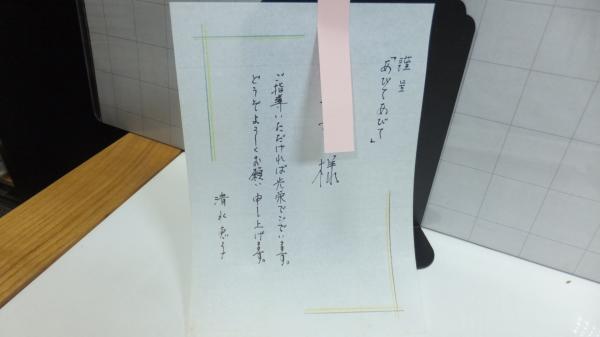 謹呈
「あびてあびて」
様
ご指導いただければ光栄でございます。
どうぞよろしくお願い申し上げます。
清水恵子